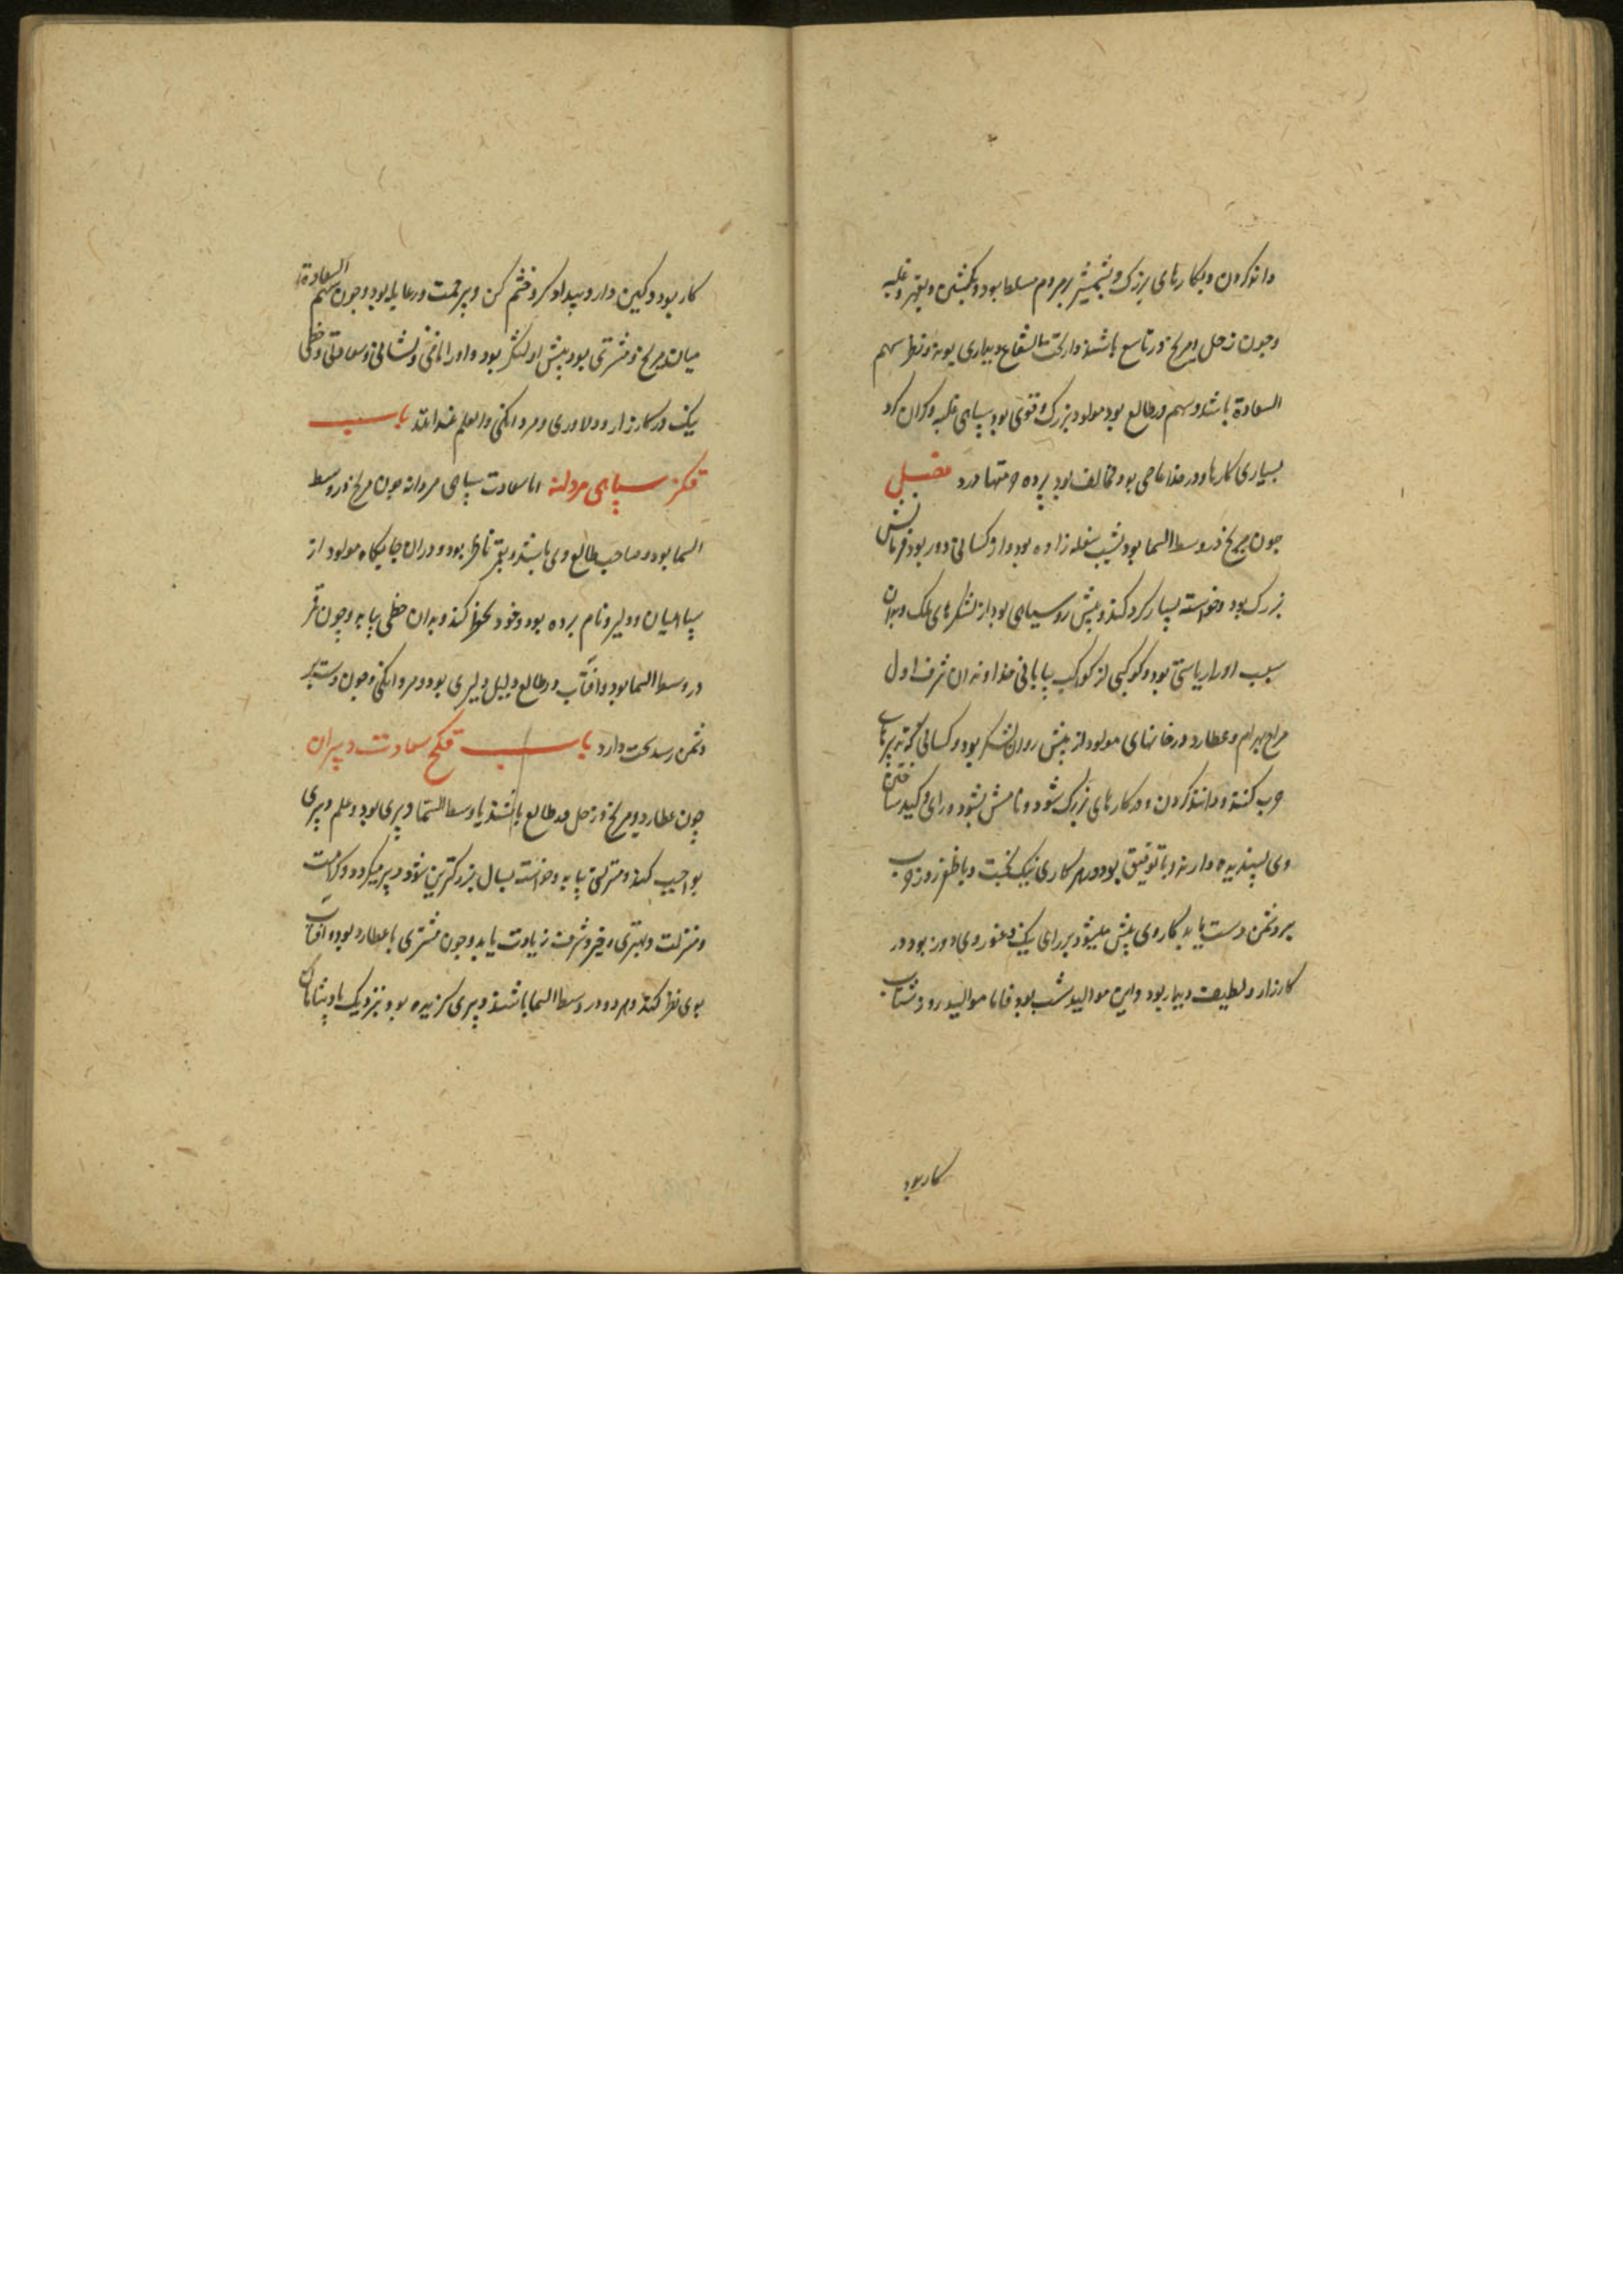 داند کردن و بکارهای بزرک و بشمشیر بر مردم مسلط بود و بکشتن و بقهر و غلبه
وجون زحل و مریخ در تاسع باشند و از تحت الشعاع و بیاری بوند و نظر سهم
السعادة باشد و سهم در طالع بود مولود بزرک و قوی بود سپاهی غلبه و کران کرد
بسیاری کارها و در خدا عاصی بود و مخالف بود پرده حرمتها درد فصل
جون مریخ در وسط السما بود بشب سفله زاده بود و از کسانی دور بود فرمانش
بزرک بود و خواسته بسیار کرد کند و پیش رو سپاهی بود از لشکرهای ملک و بدان
سبب او را ریاستی بود و کوکبی از کواکب بیابانی خداوندان شرف اول
مزاج بهرام و عطارد در خانهای مولود از پیش روان لشکر بود و کسانی که تدبیرهای
حرب کنند و دانند کردن و در کارهای بزرک شود و نامش بشود و رای و کید ساختن
وی پسندیده دارند و با توفیق بود و در هر کاری نیک بخت و با ظفر روز حرب
بر دشمن دست یابد کار وی پیش میشود بر رای نیک و عذر وی دور بود در
کارزار و لطیف و بیدار بود و این موالید شب بود فاما موالید روز شتاب
کار بود
کار بود و کین دار و بیدادکر و خشم کن و بیرحمت و رعایا بود وجون سهم السعادة
میان مریخ و مشتری بود پیش رو لشکر بود و او را نامی و نشانی و سعادتی و حظی
نیک در کارزار و دلاوری و مردانکی والعلم عند الله باب
قکز سپاهی مردانه اما سعادت سپاهی مردانه جون مریخ در وسط
السما بود و صاحب طالع وی باشد و بقمر ناظر بود و در ان جایکاه مولود از
سپاهیان و دلیر و نام برده بود و خود محفوظ کند و بدان حظی بیابد وچون قمر
در وسط السما بود و افتاب در طالع دلیل دلیری بود و مردانکی وجون دستبر
دشمن رسد سخت دارد باب قکح سعادت دبیران
چون عطارد و مریخ و زحل در طالع باشند یا وسط السما دبیری بود و علم دبیری
بواجب کند و منزلتی بیابد و خواسته بسال بزرکترین شود و دبیر میکردد و کرامت
و منزلت و مهتری و فخر و شرف زیادت یابد وجون مشتری با عطارد بود و افتاب
بوی نظر کند و هر دو در وسط السما باشند دبیری کزیده بود نزدیک پادشاهان